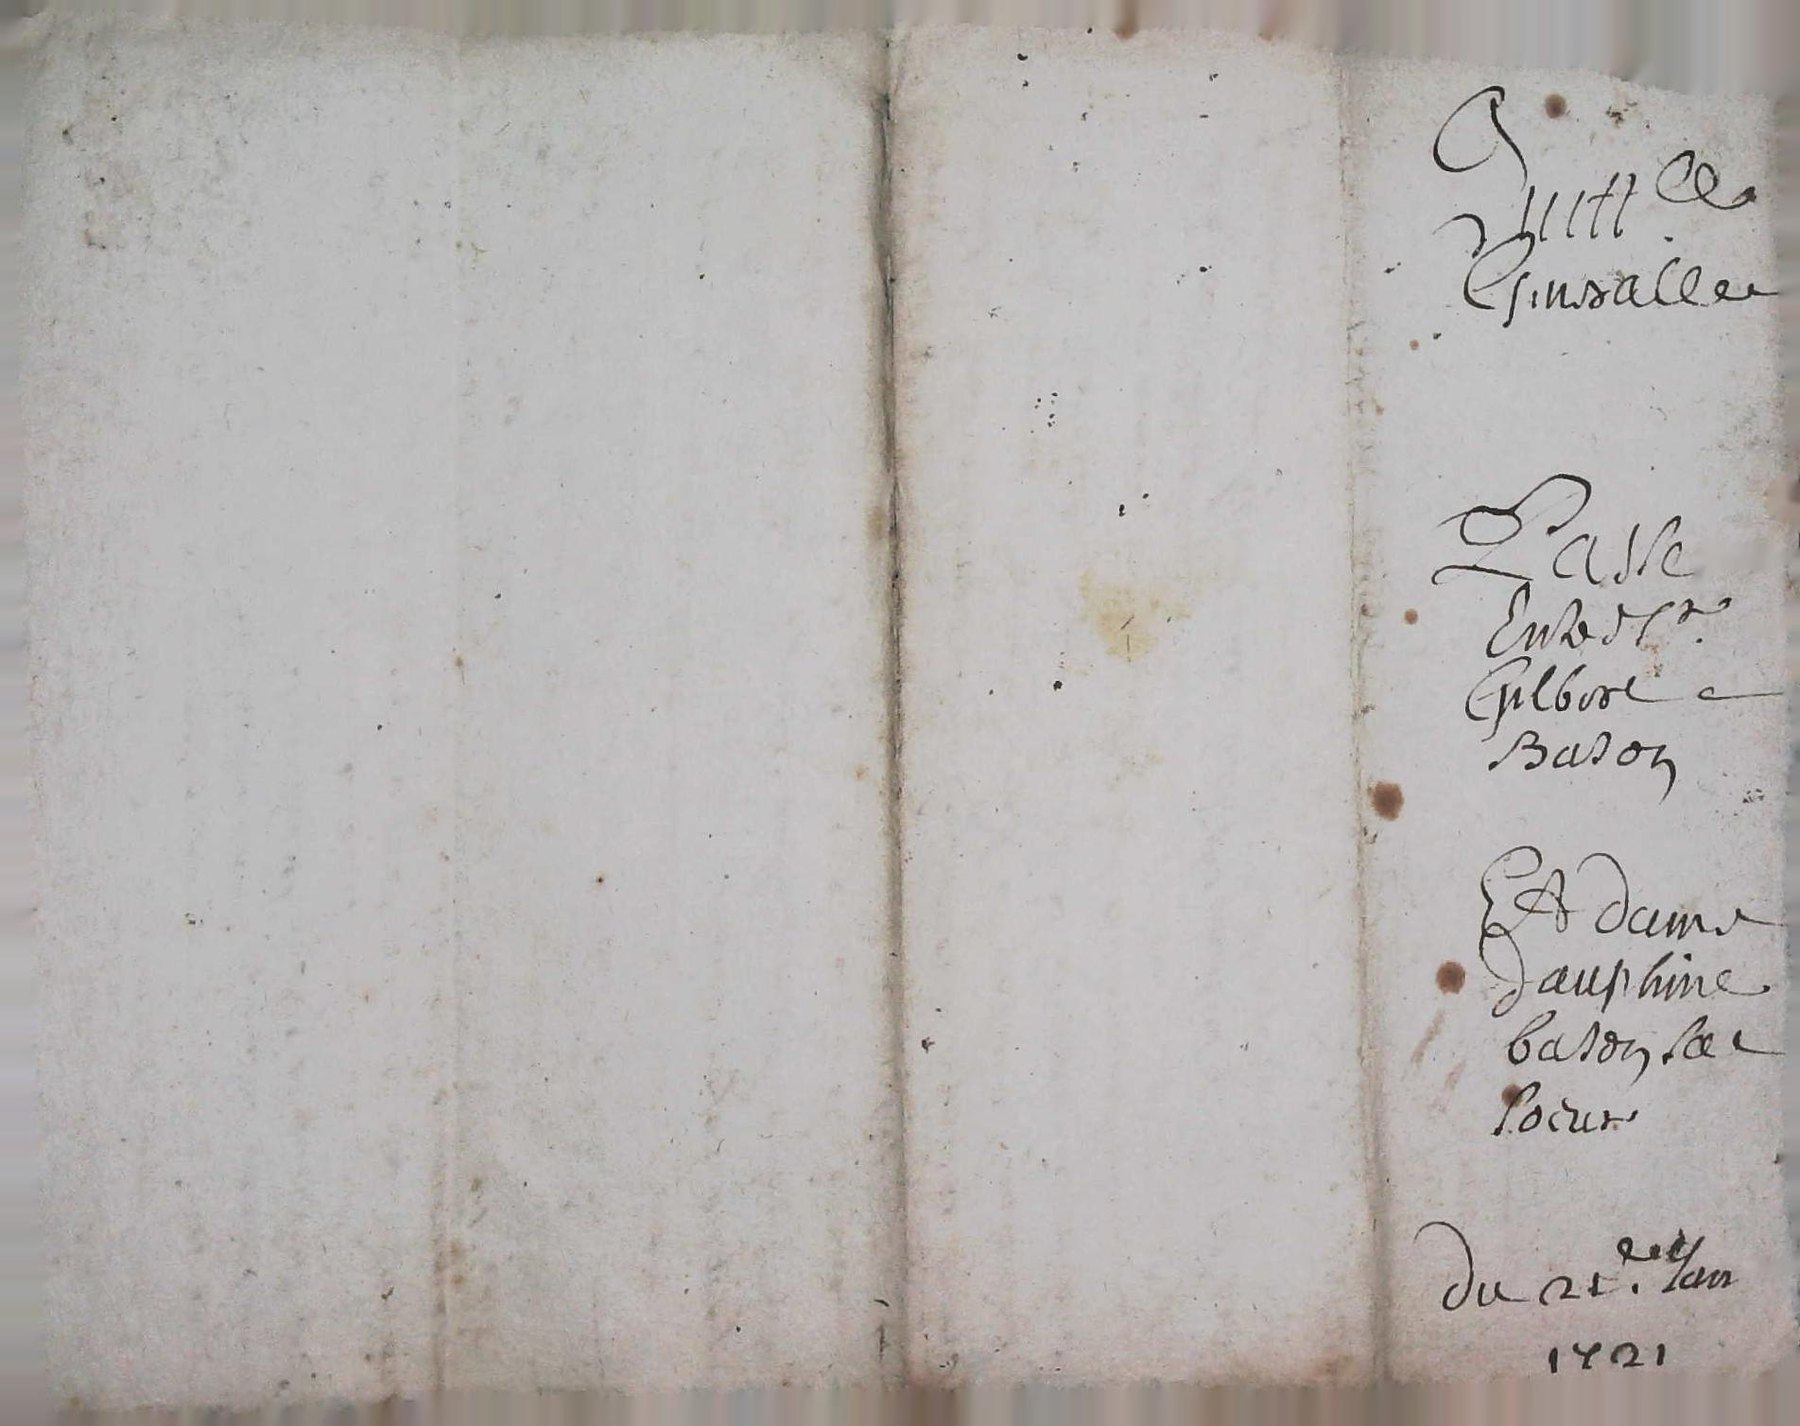 Quittce
Generalle
Passé
Entre Sr.
Gilbert
Baron
Et dame
dauphine
baron sa
soeur
Du 21e Jan
1721